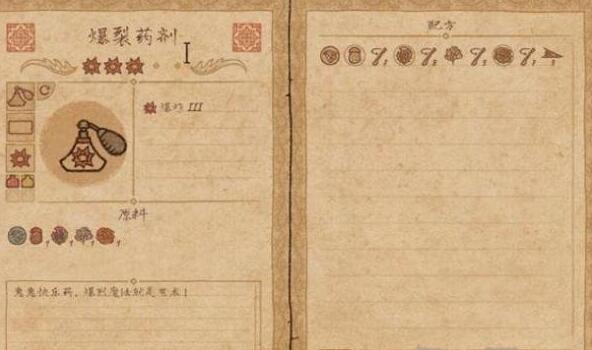 爆裂药剂
爆炸 III
原料
鬼鬼快乐药，爆烈魔法就是艺术！
配方